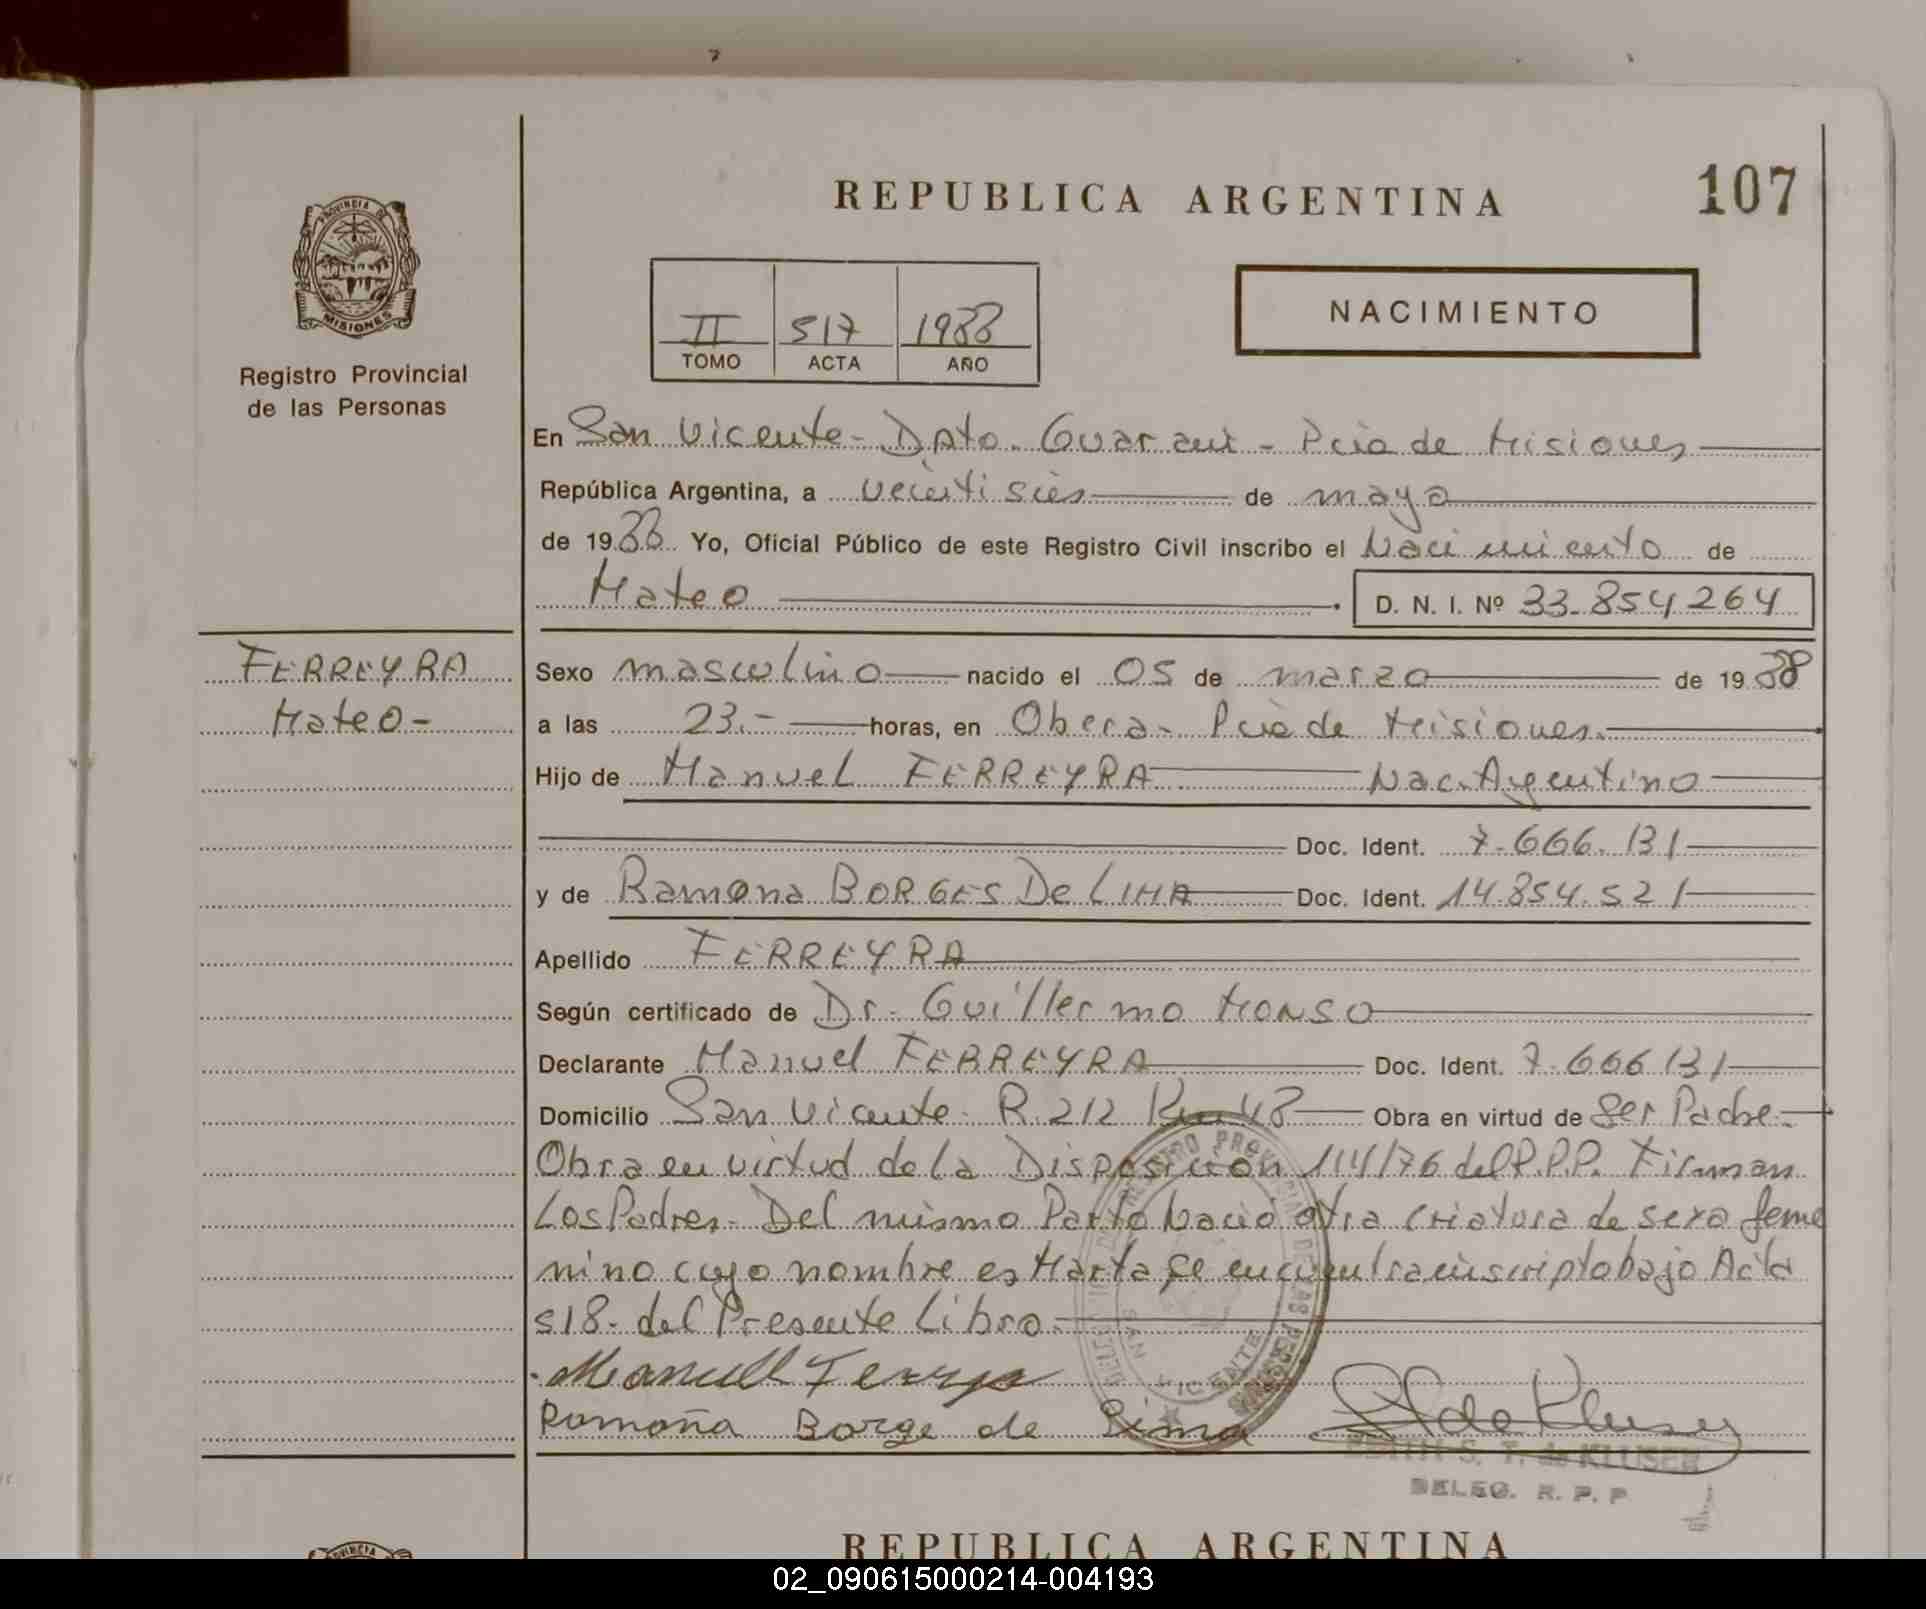 REPUBLICA ARGENTINA
107
PROVINCIA DE
MISIONES
Registro Provincial
de las Personas
II 517 1988
TOMO ACTA AÑO
NACIMIENTO
En San Vicente - Dpto. Guarani - Pcia de Misiones
República Argentina, a veinti siés de mayo
de 1988 Yo, Oficial Público de este Registro Civil inscribo el Nacimiento de
Mateo . D. N. I. Nº 33.854264
FERREYRA
Mateo -
Sexo masculino nacido el 05 de marzo de 1988
a las 23.- horas, en Obera - Pcia de Misiones.
Hijo de Manuel FERREYRA Nac. Argentino
Doc. Ident. 7.666.131
y de Ramona BORGES De LIMA Doc. Ident. 14.854.521
Apellido FERREYRA
Según certificado de Dr. Guillermo MONSO
Declarante Manuel FERREYRA Doc. Ident. 7.666131
Domicilio San Vicente. R. 212 Km 48 Obra en virtud de Ser Padre.
Obra en virtud de la Disposición 114/76 del P.P.P. Firman
Los Padres. Del mismo Parto Nacio otra criatura de sexo feme
nino cuyo nombre es Marta se encuentra inscripto bajo Acta
518. del Presente Libro.
Manuell Ferreyra
Romoña Borge de Lima
SAN VICENTE
EDITH S. T. de KLUSEN
DELEG. R. P. P.
REPUBLICA ARGENTINA
PROVINCIA
02_090615000214-004193